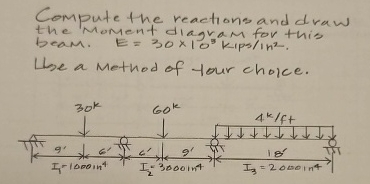 Compute the reactions and draw
the Moment diagram for this
beam. E = 30 x 10³ kips/in².
Use a Method of your choice.
30k 60k 4k/ft
9' 6' 6' 9' 18'
I₁=1000in4 I₂=3000in4 I₃=2000in4